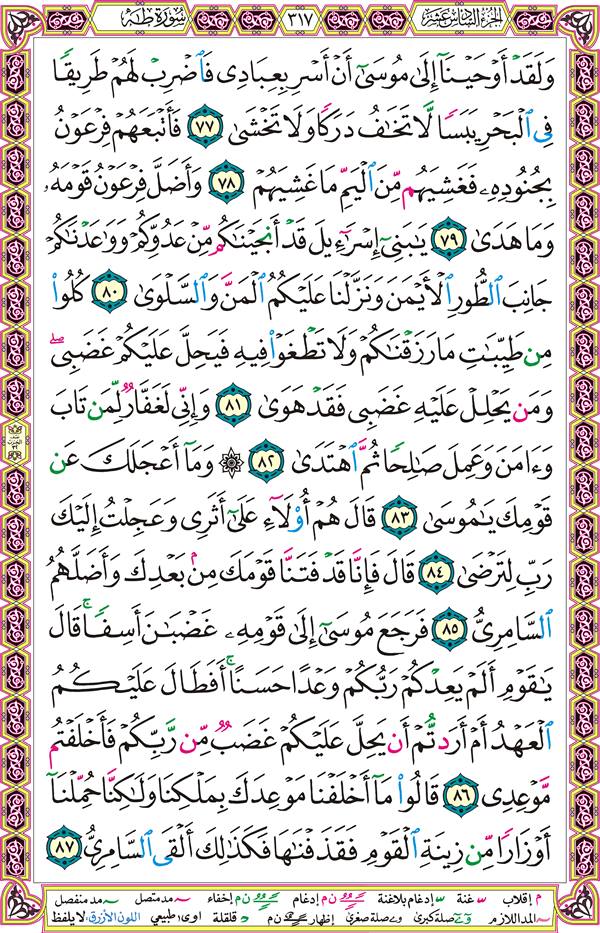 الجزء السادس عشر
٣١٧
سورة طه
وَلَقَدْ أَوْحَيْنَآ إِلَىٰ مُوسَىٰٓ أَنْ أَسْرِ بِعِبَادِى فَٱضْرِبْ لَهُمْ طَرِيقًا
فِى ٱلْبَحْرِ يَبَسًا لَّا تَخَـٰفُ دَرَكًا وَلَا تَخْشَىٰ ٧٧ فَأَتْبَعَهُمْ فِرْعَوْنُ
بِجُنُودِهِۦ فَغَشِيَهُم مِّنَ ٱلْيَمِّ مَا غَشِيَهُمْ ٧٨ وَأَضَلَّ فِرْعَوْنُ قَوْمَهُۥ
وَمَا هَدَىٰ ٧٩ يَـٰبَنِىٓ إِسْرَٰٓءِيلَ قَدْ أَنجَيْنَـٰكُم مِّنْ عَدُوِّكُمْ وَوَٰعَدْنَـٰكُمْ
جَانِبَ ٱلطُّورِ ٱلْأَيْمَنَ وَنَزَّلْنَا عَلَيْكُمُ ٱلْمَنَّ وَٱلسَّلْوَىٰ ٨٠ كُلُوا۟
مِن طَيِّبَـٰتِ مَا رَزَقْنَـٰكُمْ وَلَا تَطْغَوْا۟ فِيهِ فَيَحِلَّ عَلَيْكُمْ غَضَبِى ۖ
وَمَن يَحْلِلْ عَلَيْهِ غَضَبِى فَقَدْ هَوَىٰ ٨١ وَإِنِّى لَغَفَّارٌ لِّمَن تَابَ
وَءَامَنَ وَعَمِلَ صَـٰلِحًا ثُمَّ ٱهْتَدَىٰ ٨٢ ۞ وَمَآ أَعْجَلَكَ عَن
قَوْمِكَ يَـٰمُوسَىٰ ٨٣ قَالَ هُمْ أُو۟لَآءِ عَلَىٰٓ أَثَرِى وَعَجِلْتُ إِلَيْكَ
رَبِّ لِتَرْضَىٰ ٨٤ قَالَ فَإِنَّا قَدْ فَتَنَّا قَوْمَكَ مِنۢ بَعْدِكَ وَأَضَلَّهُمُ
ٱلسَّامِرِىُّ ٨٥ فَرَجَعَ مُوسَىٰٓ إِلَىٰ قَوْمِهِۦ غَضْبَـٰنَ أَسِفًا ۚ قَالَ
يَـٰقَوْمِ أَلَمْ يَعِدْكُمْ رَبُّكُمْ وَعْدًا حَسَنًا ۚ أَفَطَالَ عَلَيْكُمُ
ٱلْعَهْدُ أَمْ أَرَدتُّمْ أَن يَحِلَّ عَلَيْكُمْ غَضَبٌ مِّن رَّبِّكُمْ فَأَخْلَفْتُم
مَّوْعِدِى ٨٦ قَالُوا۟ مَآ أَخْلَفْنَا مَوْعِدَكَ بِمَلْكِنَا وَلَـٰكِنَّا حُمِّلْنَآ
أَوْزَارًا مِّن زِينَةِ ٱلْقَوْمِ فَقَذَفْنَـٰهَا فَكَذَٰلِكَ أَلْقَى ٱلسَّامِرِىُّ ٨٧
م إقلاب غنة إدغام بلاغنة ن م إدغام ن م إخفاء مد متصل مد منفصل
المد اللازم صلة كبرى صلة صغرى إظهار ن م قلقلة اوى طبيعي اللون الأزرق لا يلفظ